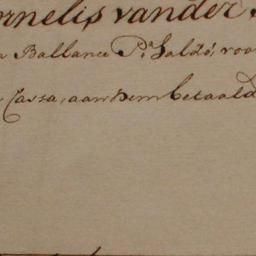 ornelis vander
Ballance P.r Saldo, voo
Cassa, aan hem betaald